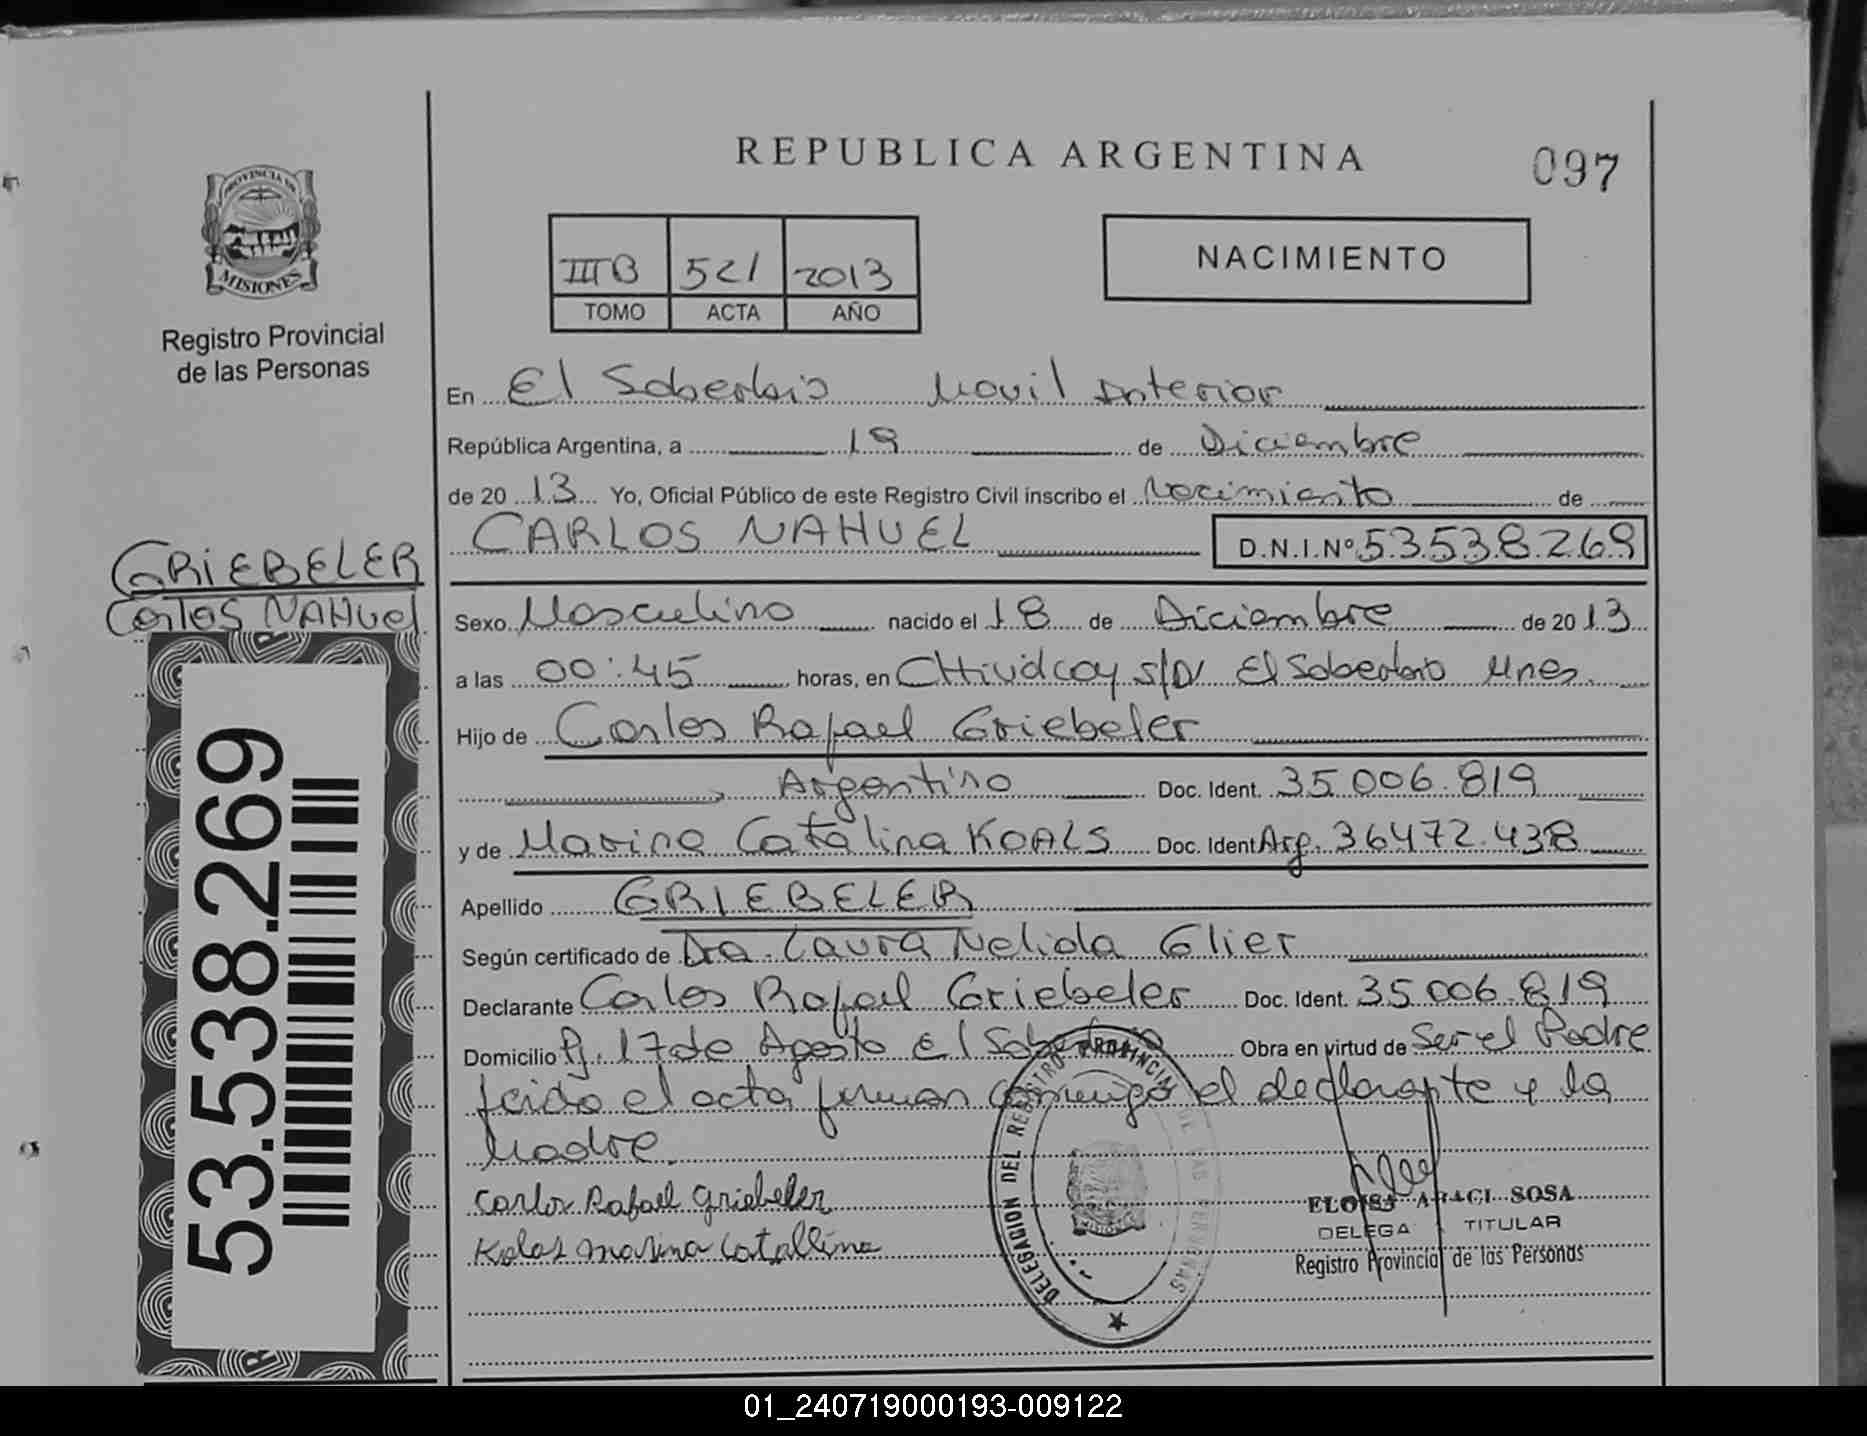 REPUBLICA ARGENTINA
097
PROVINCIA DE
MISIONES
Registro Provincial
de las Personas
IIIB 521 2013
TOMO ACTA AÑO
NACIMIENTO
En El Soberbio Movil Interior
República Argentina, a 19 de Diciembre
de 20 13 Yo, Oficial Público de este Registro Civil inscribo el Nacimiento de
CARLOS NAHUEL D.N.I.Nº 53.538.269
GRIEBELER
Carlos NAHUel
53.538.269
Sexo Masculino nacido el 18 de Diciembre de 20 13
a las 00:45 horas, en s/N El Soberbio Mnes.
Hijo de Carlos Rafael Griebeler
Argentino Doc. Ident. 35.006.819
y de Marina Catalina KOALS Doc. Ident Arg. 36472.438
Apellido GRIEBELER
Según certificado de Dra. Laura Nelida Glier
Declarante Carlos Rafael Griebeler Doc. Ident. 35.006.819
Domicilio Pj. 17 de Agosto El Soberbio Obra en virtud de Ser el Padre
leido el acta firman conmigo el declarante y la
Madre.
Carlos Rafael Griebeler
Kolas Marina Catallina
DELEGACION DEL REGISTRO PROVINCIAL DE LAS PERSONAS
ELOISA ARACI SOSA
DELEGA TITULAR
Registro Provincial de las Personas
01_240719000193-009122